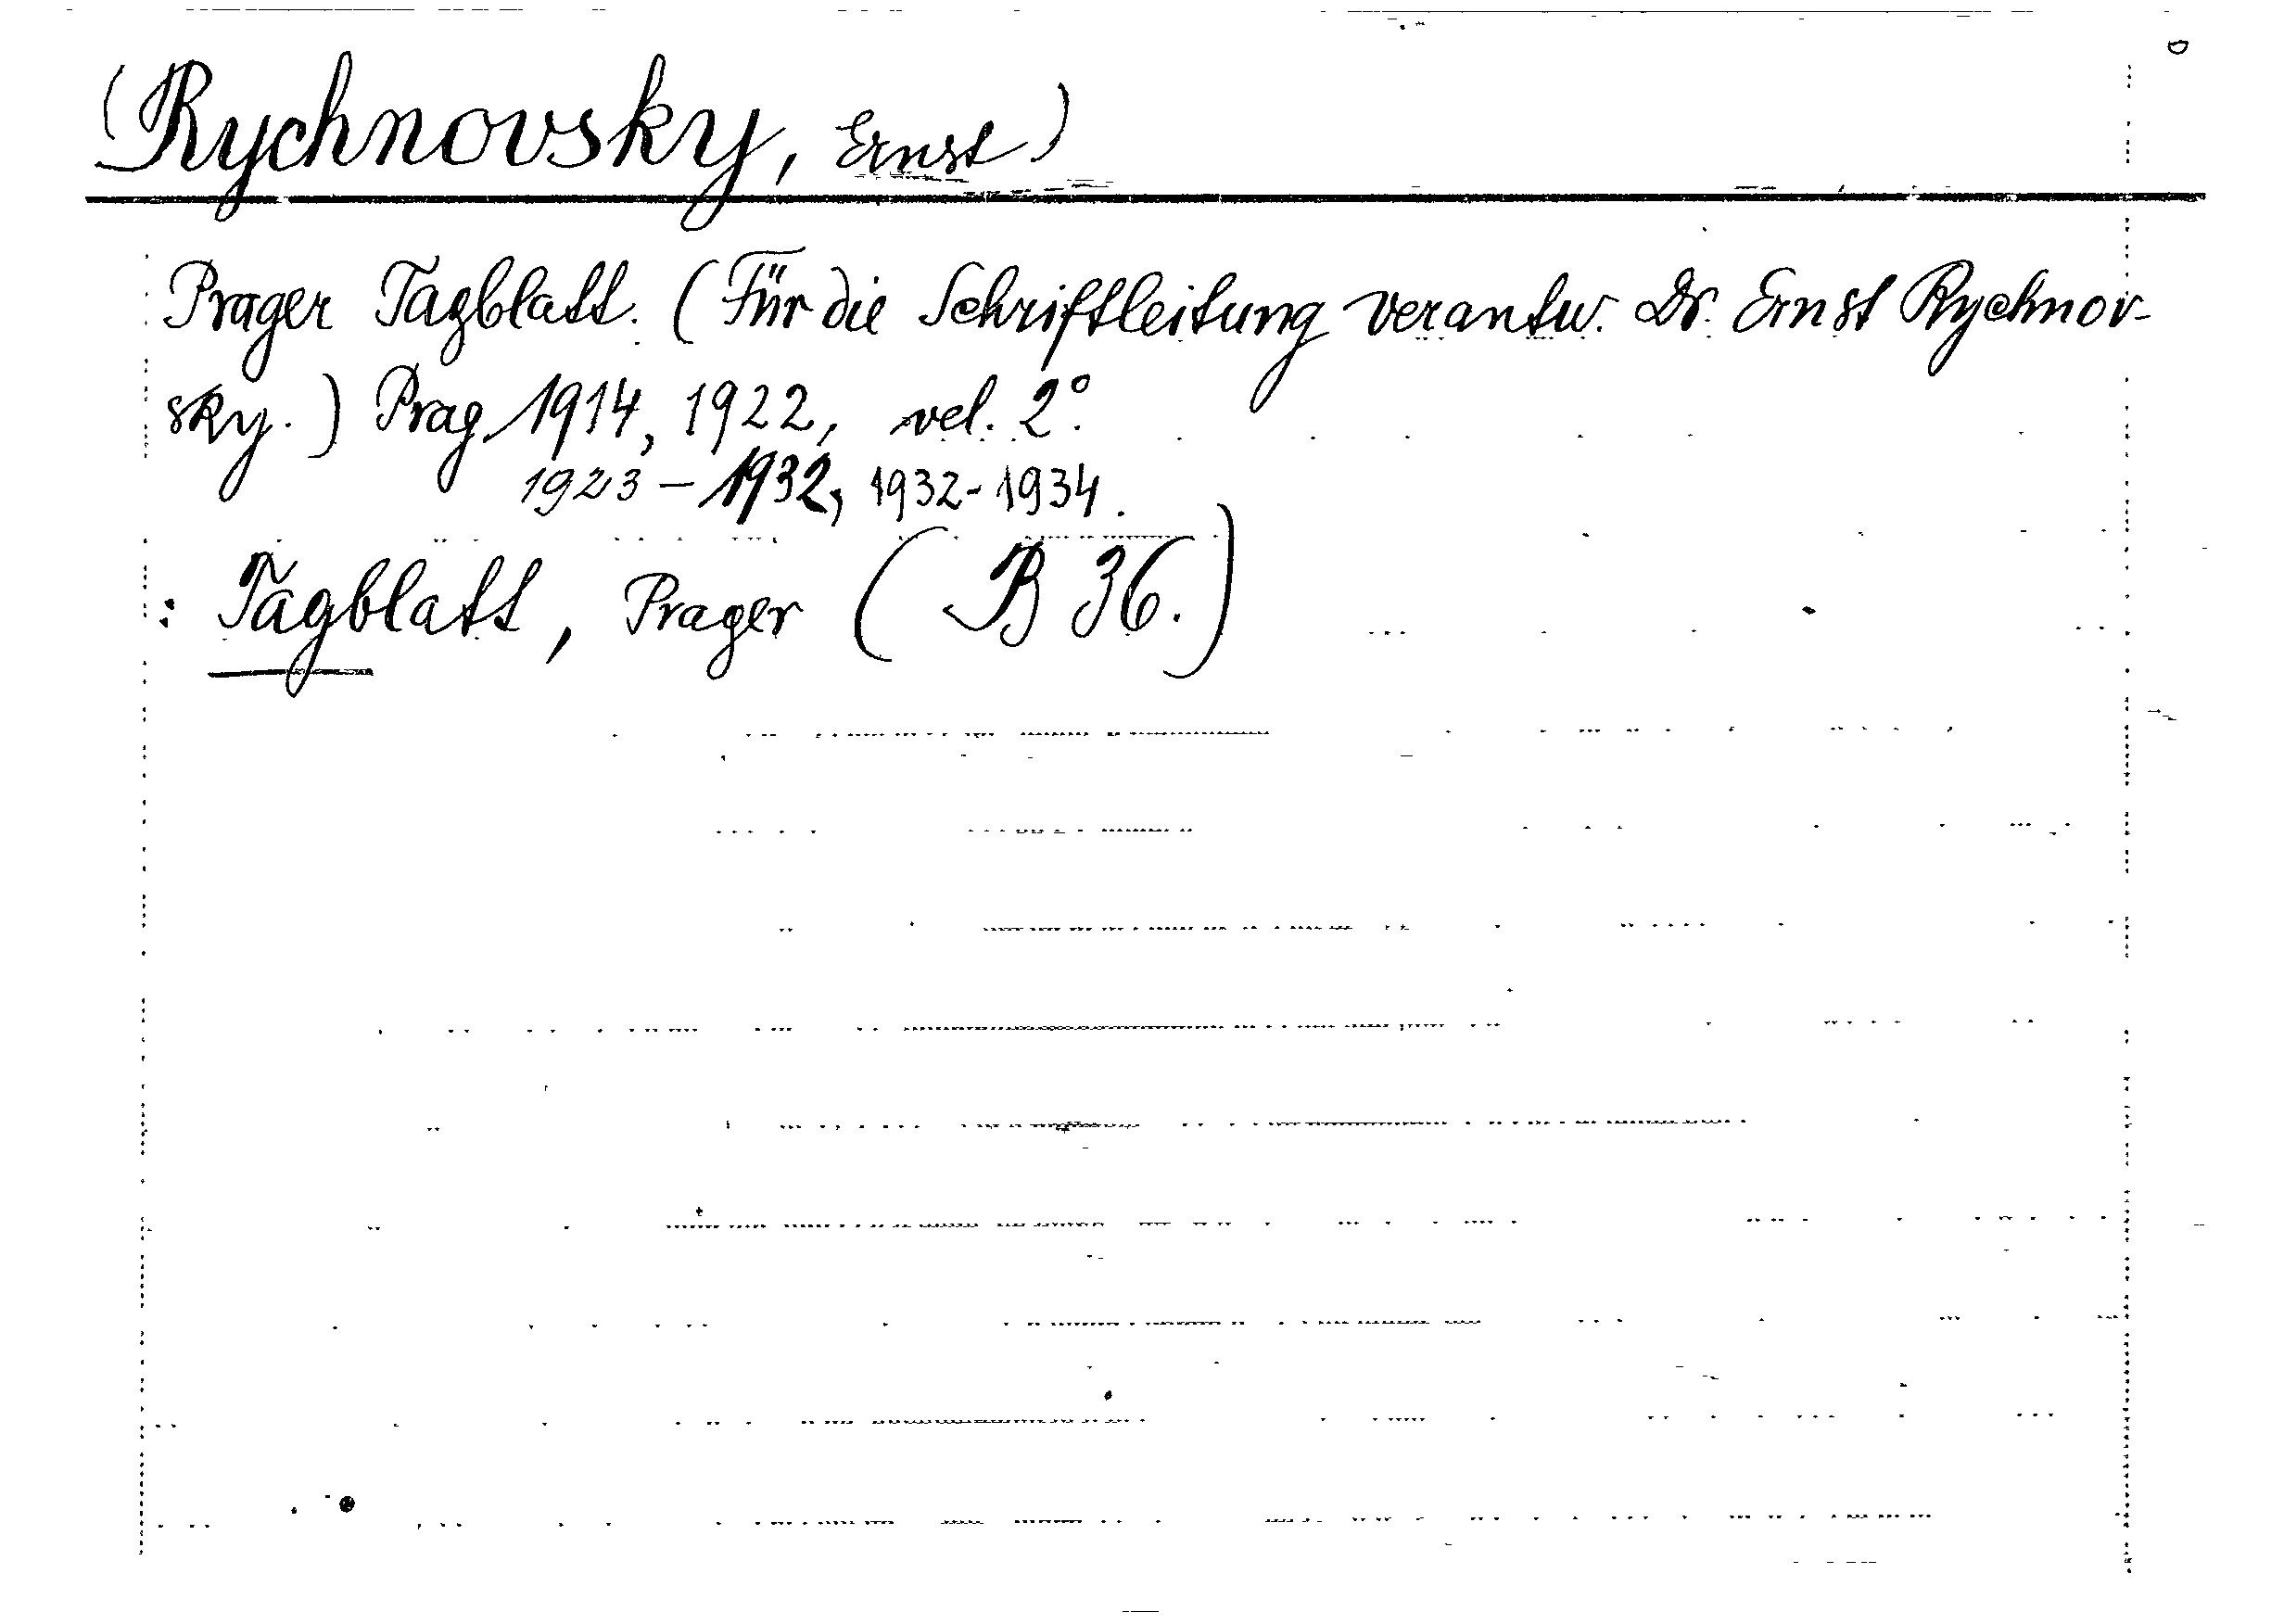 (Rychnovsky, Ernst)
Prager Tagblatt. (Für die Schriftleitung verantw. Dr. Ernst Rychnov-
sky.) Prag, 1914, 1922, vel. 2°.
1923 - 1932, 1932-1934.
: Tagblatt, Prager (B 36.)